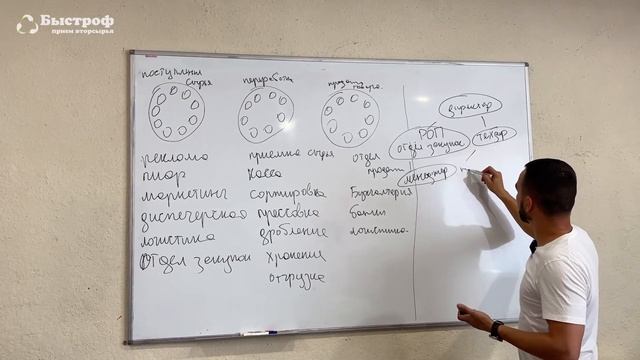 Быстроф
прием вторсырья
поступление
сырья
реклама
пиар
маркетинг
диспечерская
логистика
отдел закупок
переработка
приемка сырья
касса
сортировка
прессовка
дробление
хранение
отгрузка
продажа
товара
отдел
продаж
Бухгалтерия
банки
логистика
директор
РОП
отдел закупок
техдир
менеджер